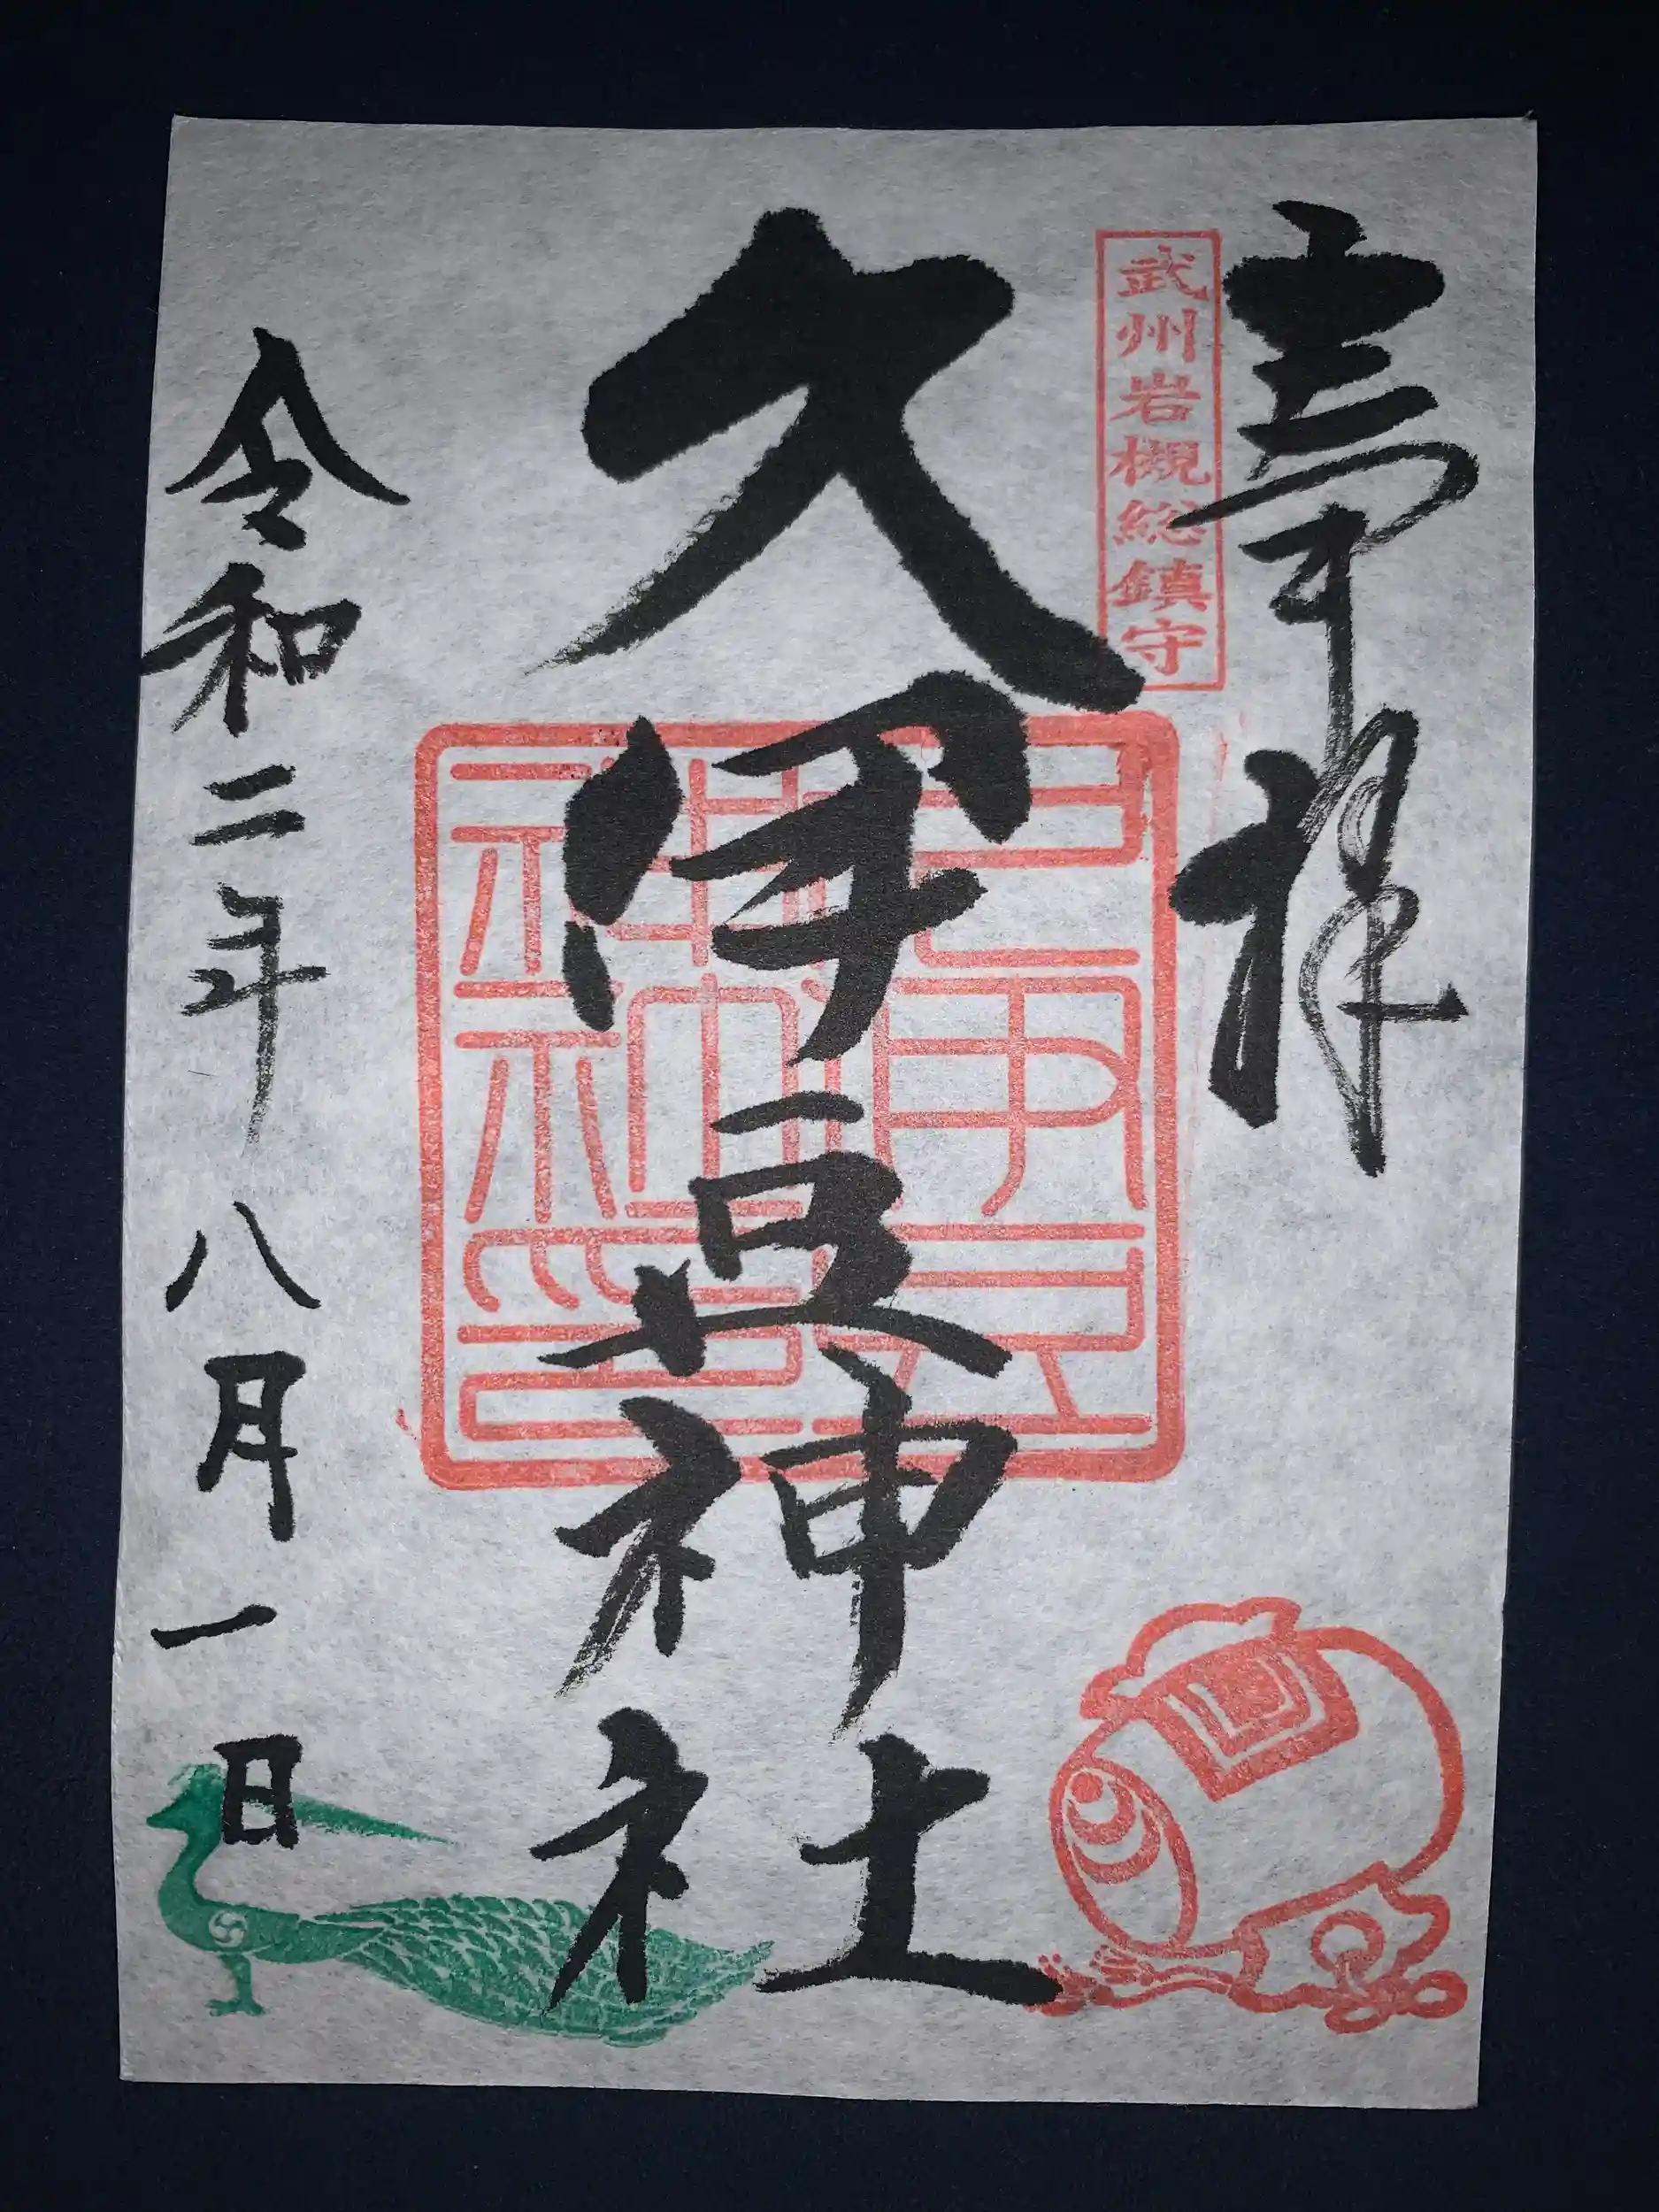 奉拝
武州岩槻総鎮守
久伊豆神社
久伊豆
神社印
令和二年八月一日